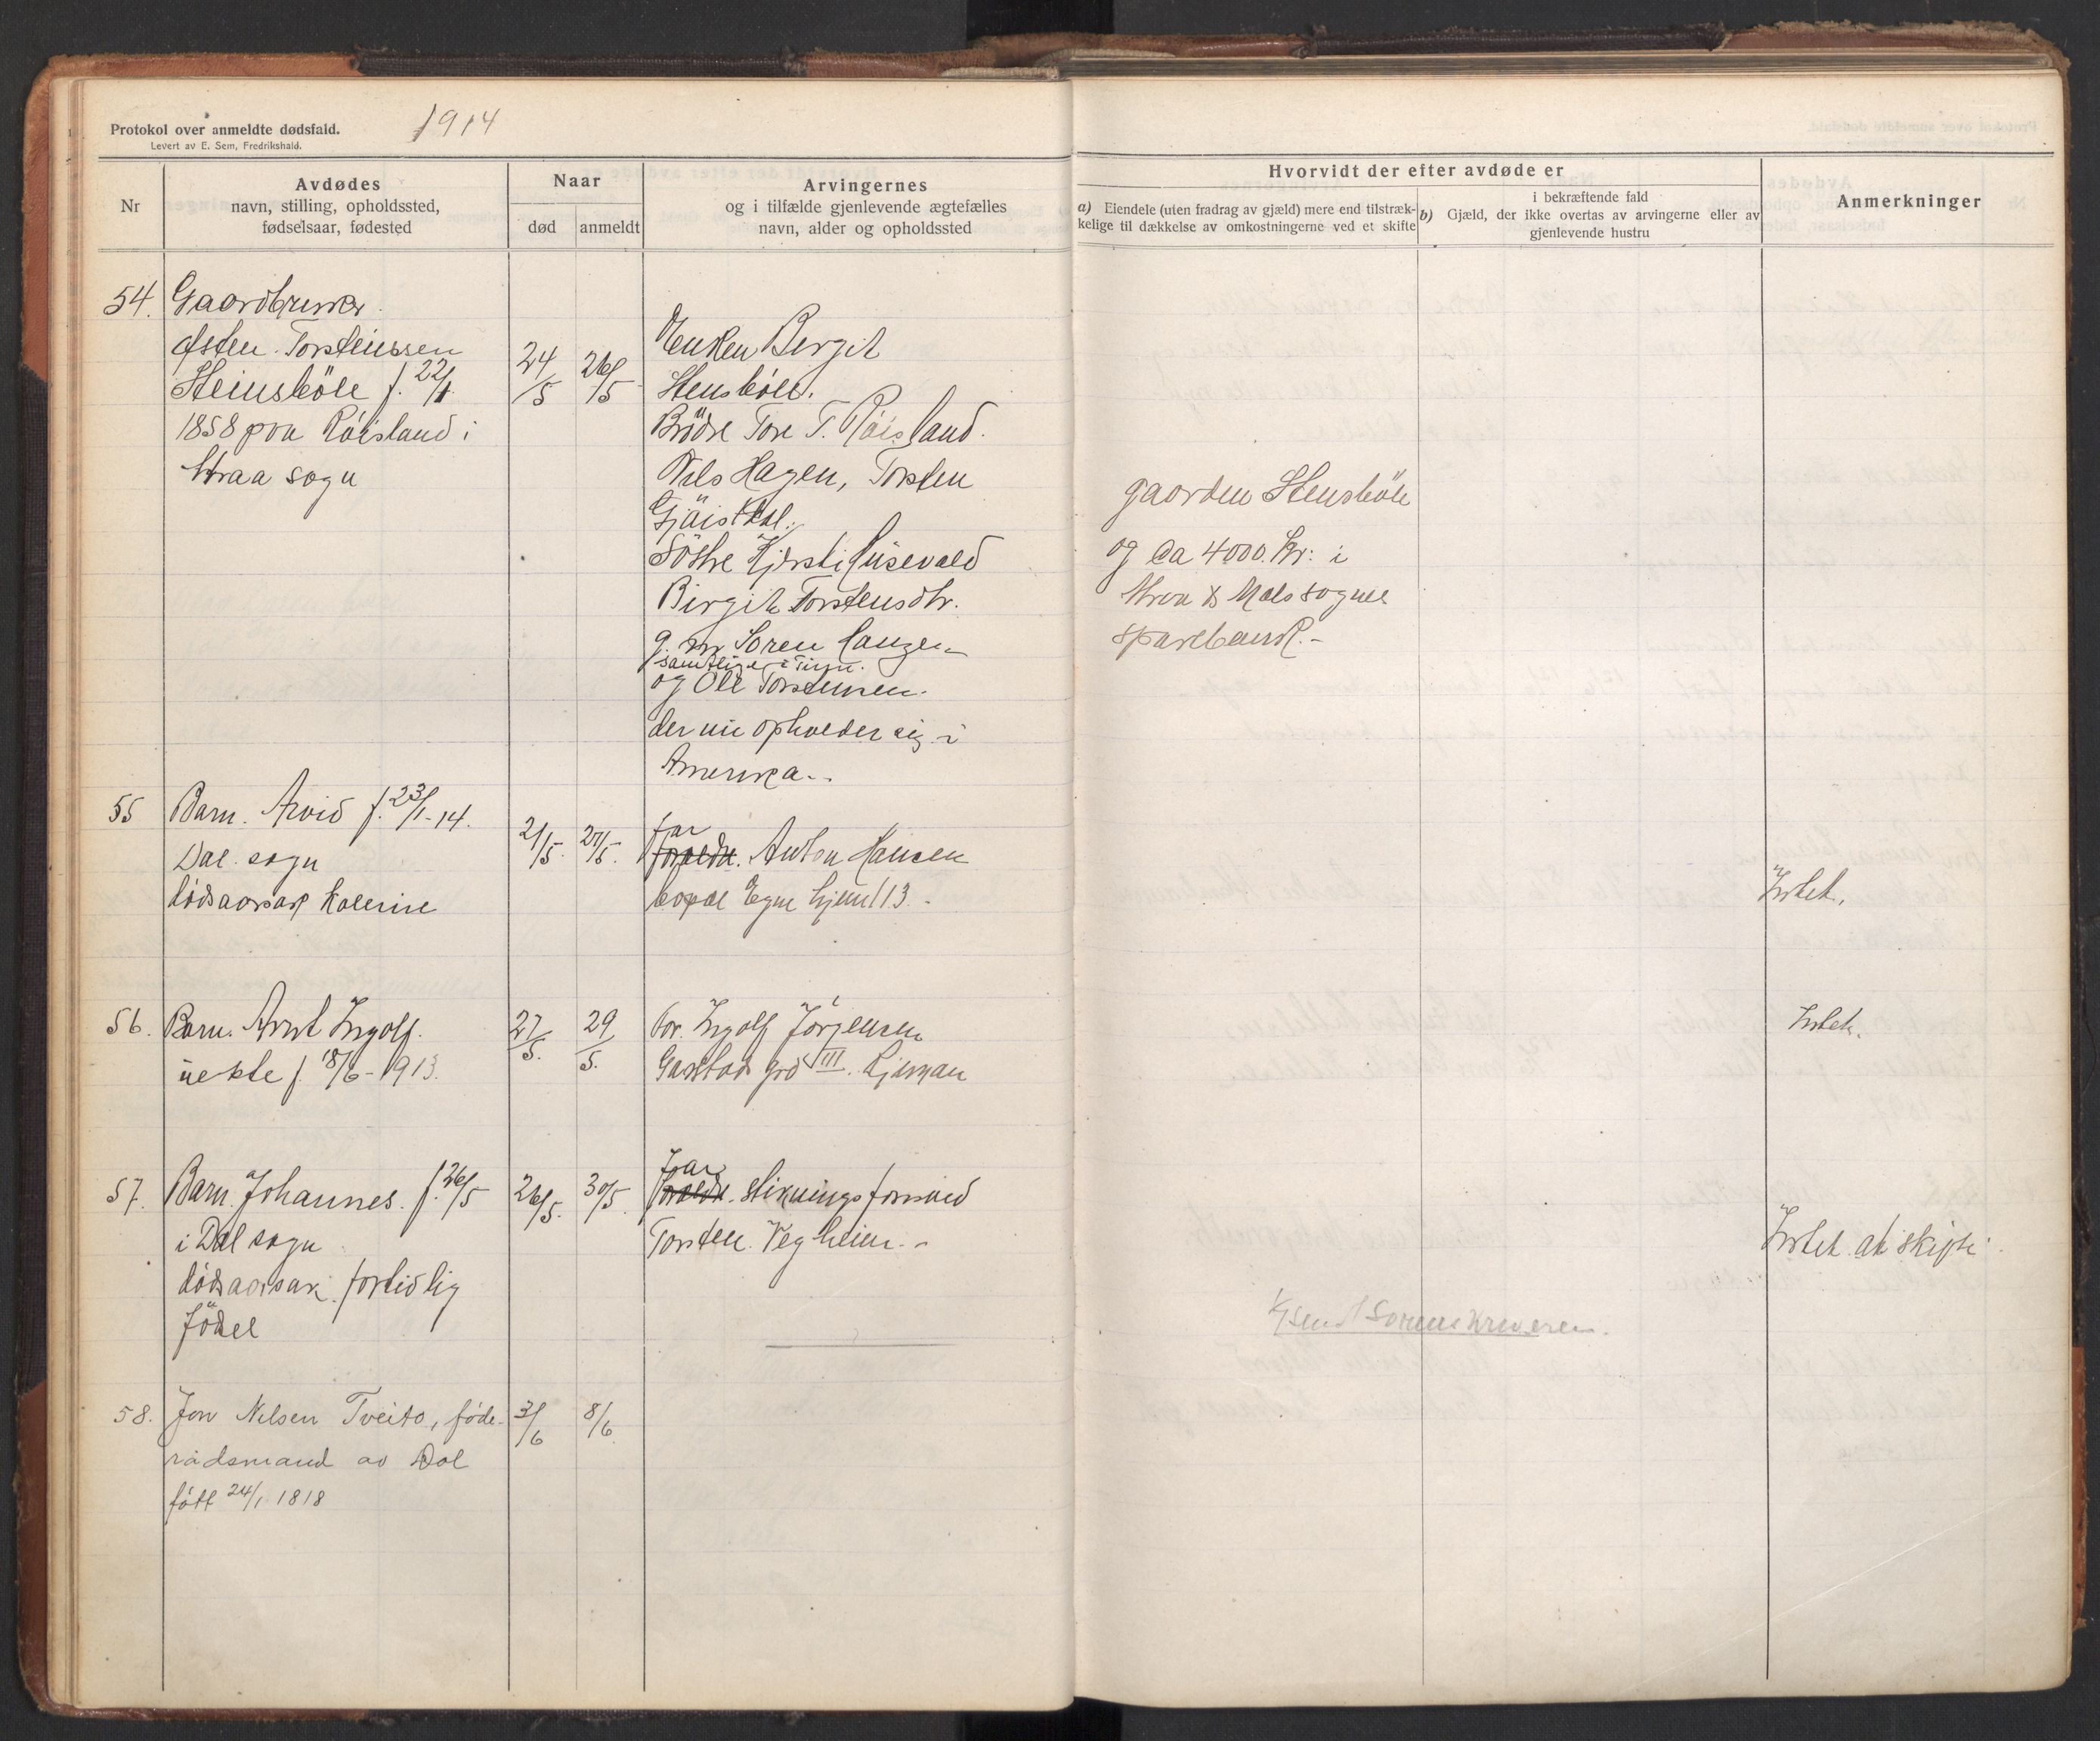 Protokol over anmeldte dødsfald.
1914
Levert av E. Sem, Fredrikshald.
Nr
Avdødes
navn, stilling, opholdssted,
fødselsaar, fødested
Naar
død
anmeldt
Arvingernes
og i tilfælde gjenlevende ægtefælles
navn, alder og opholdssted
Hvorvidt der efter avdøde er
a) Eiendele (uten fradrag av gjæld) mere end tilstræk-
kelige til dækkelse av omkostningerne ved et skifte
i bekræftende fald
b) Gjæld, der ikke overtas av arvingerne eller av
gjenlevende hustru
Anmerkninger
54. Gaardbruker
Østen Torsteinssen
Steinsböle f. 22/1
1858 paa Röisland i
Atraa sogn
24/5
26/5
Enken Bergit
Stensböle.
Brödre Tore T. Röisland.
Nils Hagen, Torsten
Gjöistdal.
Söstre Kjersti Husevold
Birgit Torstensdtr.
g. m. Soren Haugen
samtlige i Tinn.
og Ole Torstensen.
der nu opholder sig i
Amerika.
gaarden Stensböle
og ca 4000. Kr: i
Atraa & Mæls sogns
sparebank.-
55 Barn. Arvid f. 23/1-14.
Dal sogn
dödsaarsak kolerine
21/5.
27/5.
far
foreldre. Anton Hansen
bopæl Egne hjem 113.
Intet.
56. Barn. Arnt Ingolf.
uekte f. 18/6-1913.
27/5.
29/5.
for. Ingolf Jörgensen
Gaustad grd III. Rjukan
Intet.
57. Barn. Johannes. f. 26/5
i Dal sogn
dödsaarsak. fortidlig
födsel
26/5.
30/5.
Far
Foreldre. stikningsformand
Torsten. Vegheim.-
Intet at skifte.
1/7 send Sorenskriveren.
58. Jon Nilsen Tveito, föde-
rådsmand av Dal
fött 24/1 1818
3/6
8/6